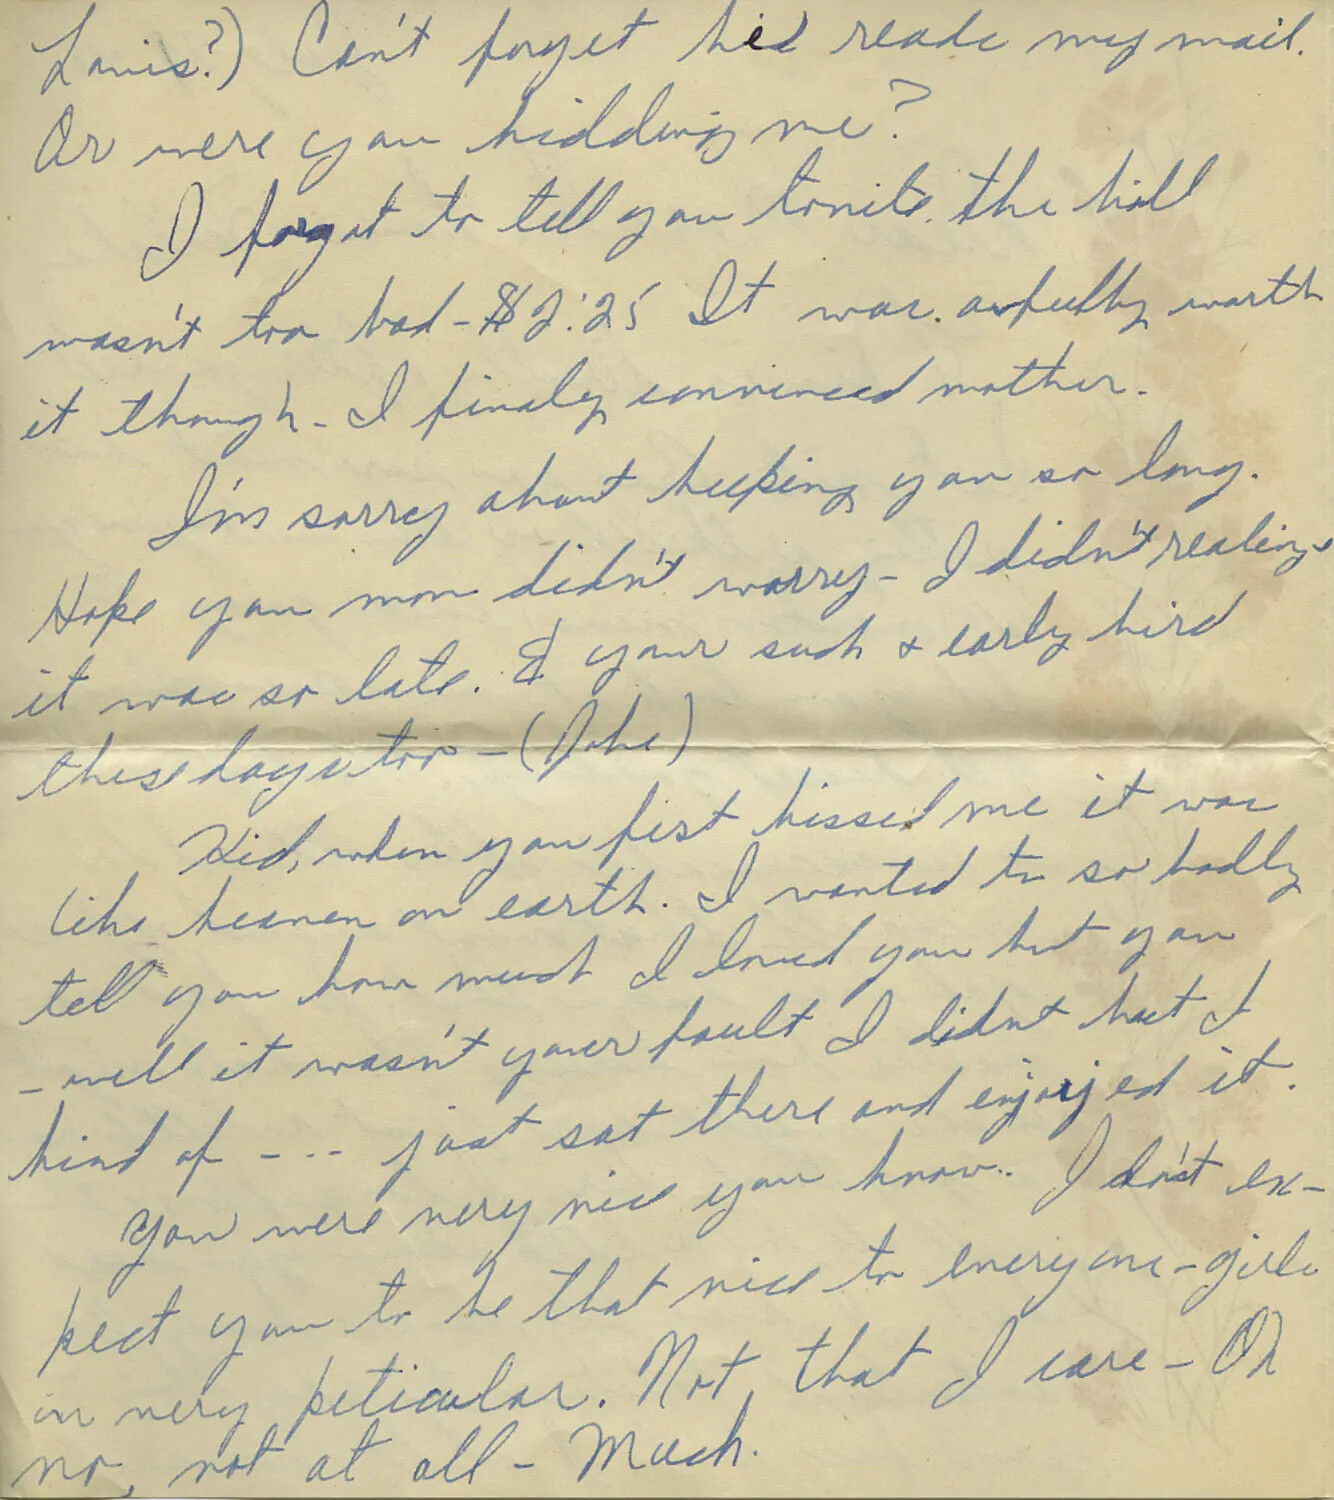 Louis?) Can't forget he'd reade my mail.
Or were you kidding me?
I forgot to tell you tonite. the bill
wasn't too bad - $2.25 It was. awfully worth
it though - I finaly convinced mother.
I'm sorry about keeping you so long.
Hope you mom didn't worry - I didn't realize
it was so late. & your such a early bird
these days too - (Joke)
Kid, when you first kissed me it was
like heaven on earth. I wanted to so badly
tell you how much I loved you but you
- well it wasn't your fault I didnt but I
kind of - - - just sat there and enjoyed it.
You were very nice you know.. I don't ex-
pect you to be that nice to everyone - girls
in very peticular. Not, that I care - Oh
no, not at all - Much.